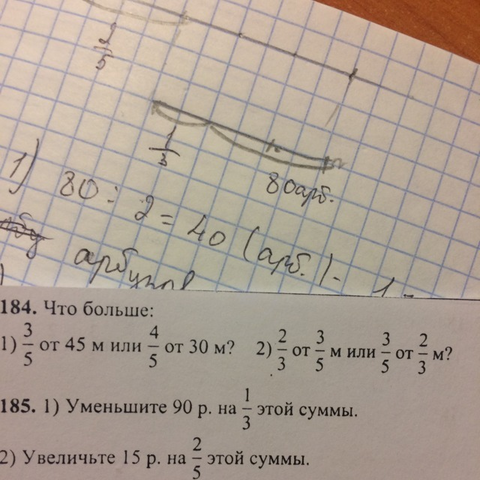 2/5
1/3
80арб.
1) 80 : 2 = 40 (арб.) -
арбузов
184. Что больше:
1) 3/5 от 45 м или 4/5 от 30 м? 2) 2/3 от 3/5 м или 3/5 от 2/3 м?
185. 1) Уменьшите 90 р. на 1/3 этой суммы.
2) Увеличьте 15 р. на 2/5 этой суммы.